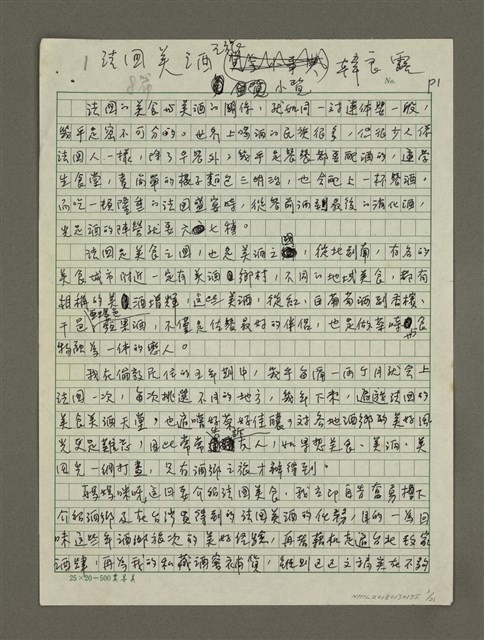 法國美酒
小覽
韓良露
No. P1
法國的美食与美酒的關係,我如同一对連体嬰一般,
幾乎是密不可分的。世界上喝酒的民族很多,但很少人像
法國人一樣,除了早餐外,幾乎是餐餐都要配酒的,連学
生食堂,賣簡單的棍子麵包三明治,也会配上一杯餐酒,
而吃一頓隆重的法國盛宴時,從餐前酒到最後的消化酒,
光是酒的陣勢就要六七種。
法國是美食之國,也是美酒之國,從北到南,有名的
美食城市附近一定有美酒鄉村,不同的地域美食,都有
相構的美酒增輝,這些美酒,從紅、白葡萄酒到香檳、
干邑、蘋果酒,不僅是佐餐最好的伴侶,也是做菜時与食
物融為一体的戀人。
我在倫敦居住的五年期中,幾乎每隔一兩个月就会上
法國一次,每次挑選不同的地方,幾年下來,遍遊法國的
美食美酒天堂,也遍嚐好菜好佳釀,对各地酒鄉的美好風
光更是難忘,因此常常告訴友人,如果想美食、美酒、美
景一網打盡,只有酒鄉之旅才辦得到。
這回要介紹法國美食,我立即自告奮勇擔下
介紹酒鄉及在台灣買得到的法國美酒的任務,目的一為回
味這些年酒鄉旅次的美好經驗,再者藉机走遍台北好家
酒肆,再為我的私藏酒窖補貨,
25×20=500
NMTL20180130135
1/21